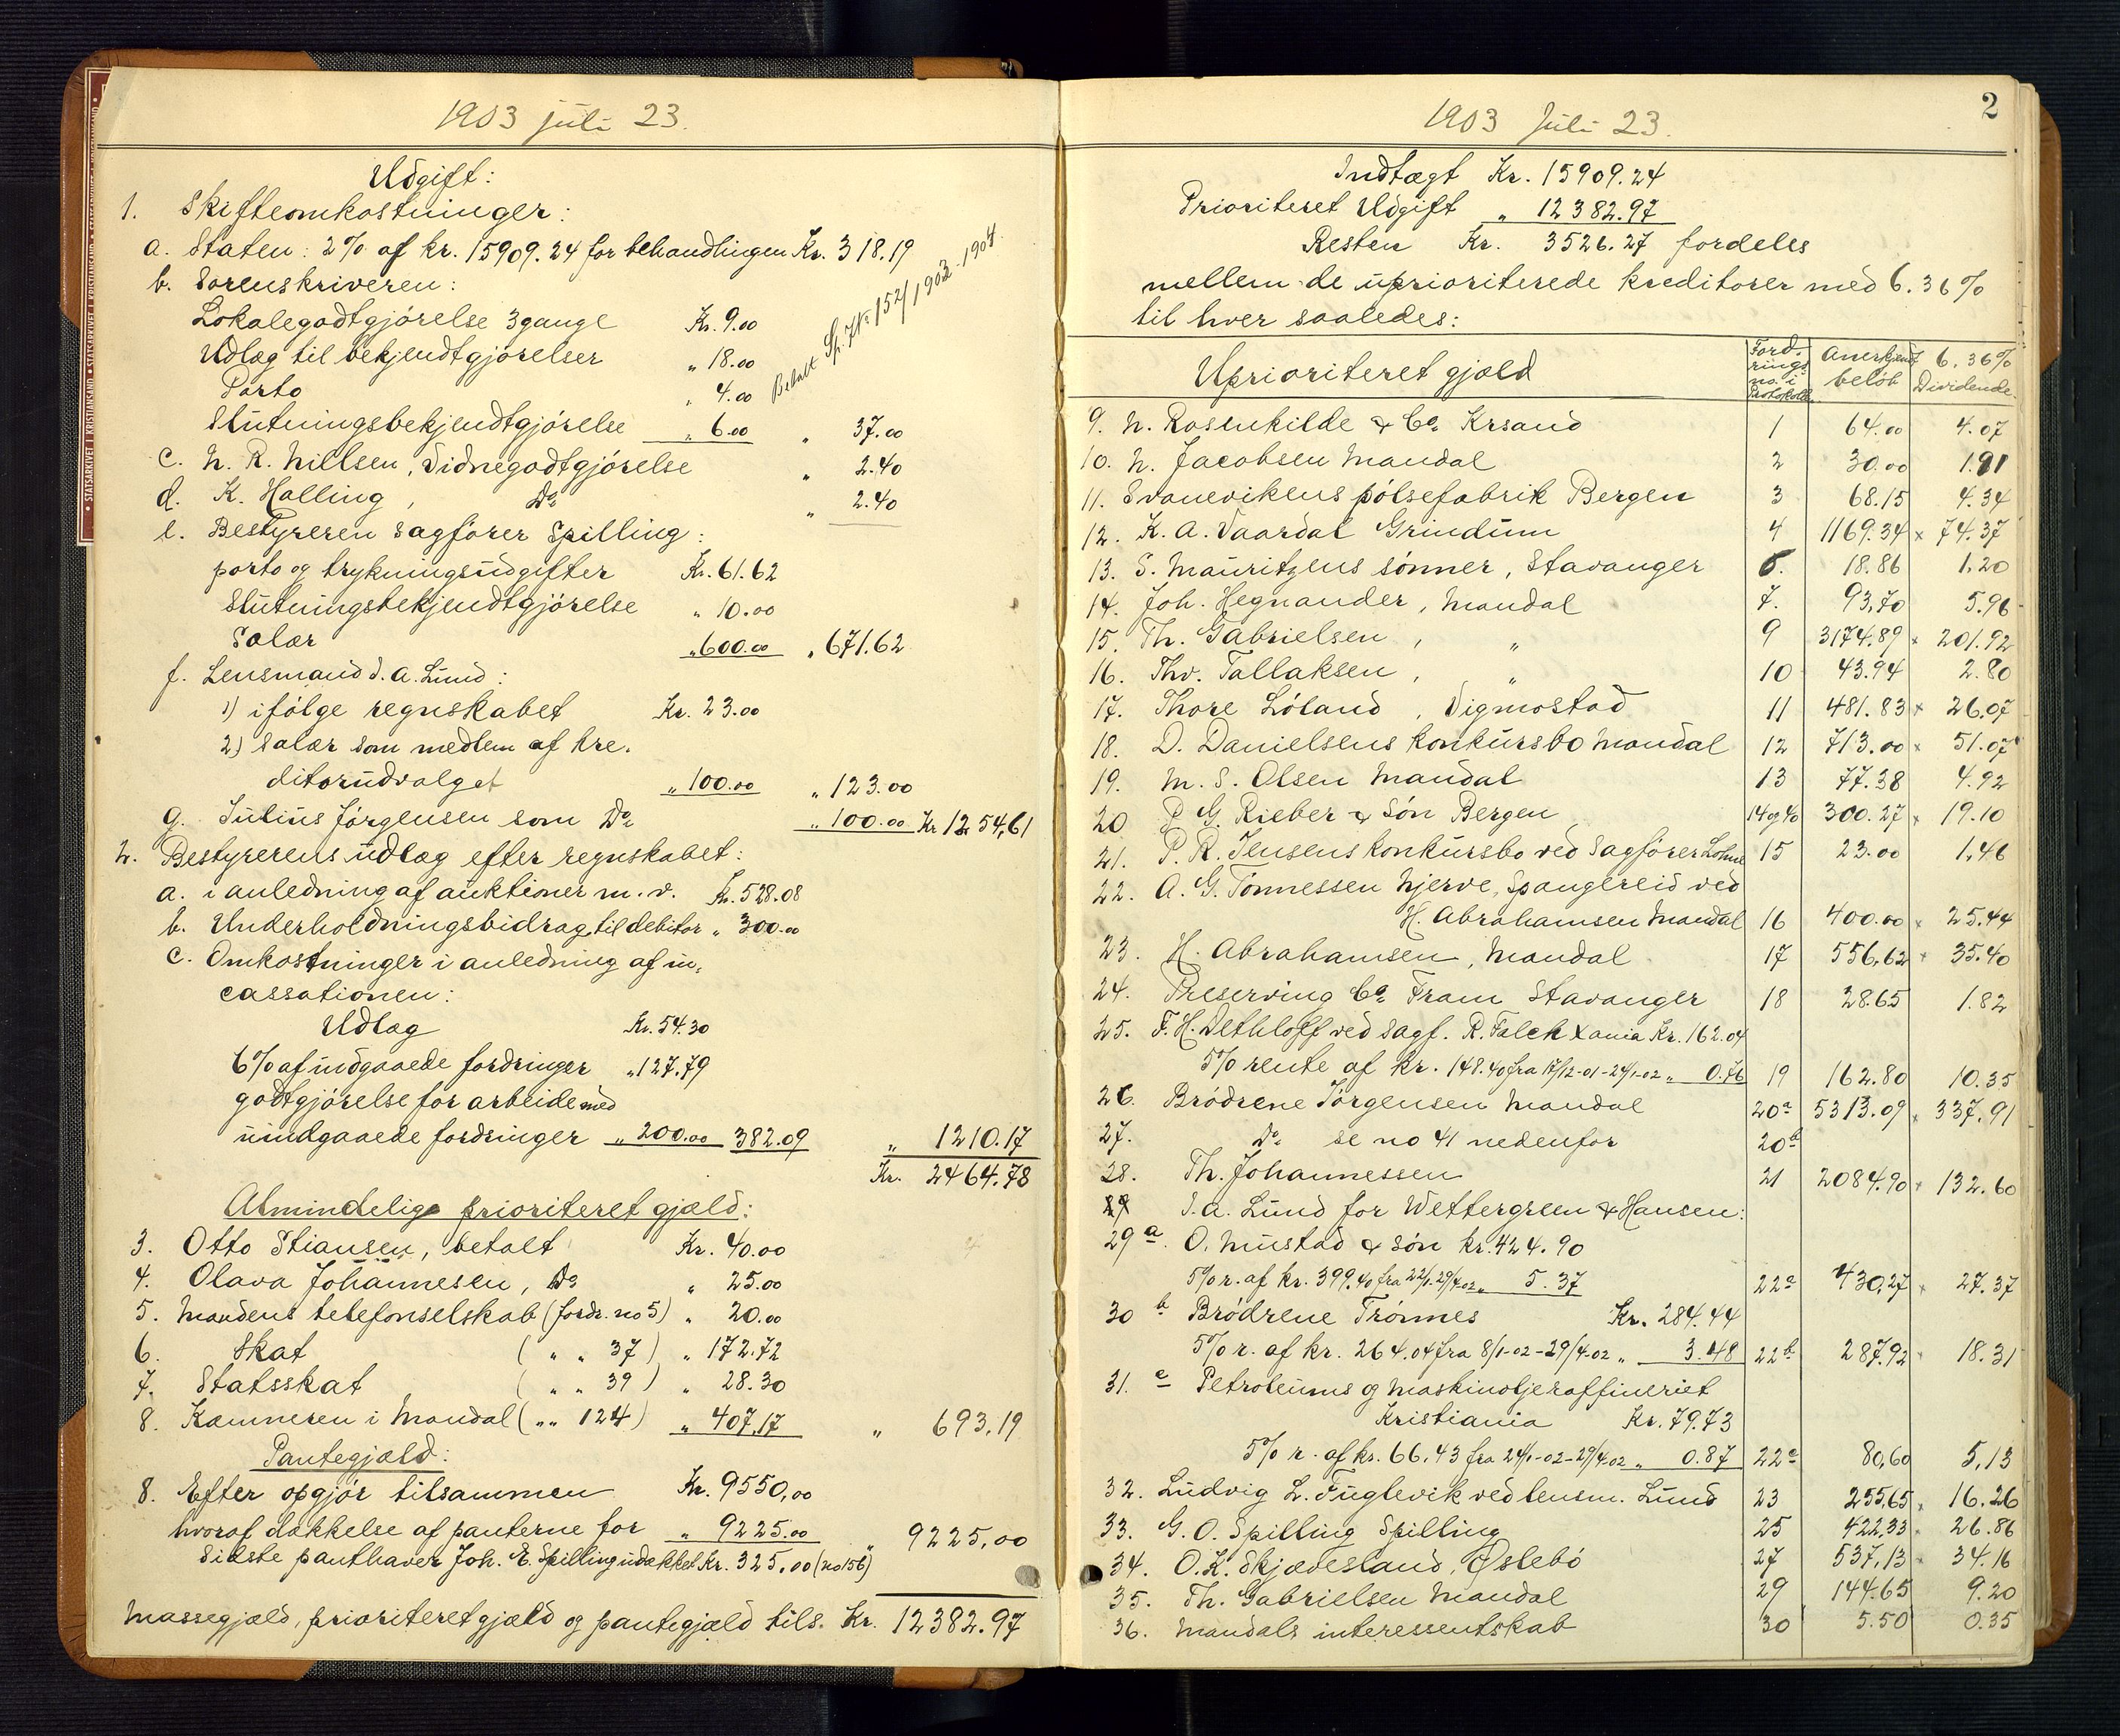 1903 juli 23.
Udgift:
1. Skifteomkostninger:
a. Staten: 2% af kr. 15909.24 for behandlingen Kr. 318.19
b. Sorenskriveren:
Lokalegodtgjörelse 3 gange Kr. 9.00
Udlæg til bekjendtgjörelser " 18.00
Porto " 4.00
Slutningsbekjendtgjörelse " 6.00 " 37.00
Betalt Sp. J No 152/1903-1904
c. N. R. Nillsen, Vidnegodtgjörelse " 2.40
d. K. Halling, Do " 2.40
e. Bestyreren Sagförer Spilling:
porto og trykningsudgifter Kr. 61.62
Slutningsbekjendtgjörelse " 10.00
Salær " 600.00 " 671.62
f. Lensmand J. A. Lund:
1) ifölge regnskabet Kr. 23.00
2) Salær som medlem af kre-
ditorudvalget " 100.00 " 123.00
g. Julius Jörgensen som Do " 100.00 Kr 1254,61
2. Bestyrerens udlæg efter regnskabet:
a. i anledning af auktioner m. v. Kr. 528.08
b. Underholdningsbidrag til debitor " 300.00
c. Omkostninger i anledning af in-
cassationen:
Udlæg Kr. 54.30
6% af indgaaede fordringer " 127.79
godtgjörelse for arbeide med
uindgaaede fordringer " 200.00 382.09 " 1210.17
Kr. 2464.78
Almindelig prioriteret gjæld:
3. Otto Stiansen, betalt Kr. 40.00
4. Olava Johannesen, Do " 25.00
5. Mandens telefonselskab (fordr. no 5) " 20.00
6. Skat ( " " 37) " 172.72
7. Statsskat ( " " 39) " 28.30
8. Kæmneren i Mandal ( " " 124) " 407,17 " 693,19
Pantegjæld:
8. Efter opgjör tilsammen Kr. 9550,00
hvoraf dækkelse af panterne for " 9225.00 " 9225,00
Sidste panthaver Joh. E. Spilling udækket Kr. 325,00 (no 156)
Massegjæld, prioriteret gjæld og pantegjæld tils. Kr. 12382.97
1903 Juli 23.
2
Indtægt Kr. 15909.24
Prioriteret Udgift " 12382.97
Resten Kr. 3526.27 fordeles
mellem de uprioriterede kreditorer med 6.36%
til hver saaledes:
Uprioriteret gjæld Ford-rings no. i Protokollen Anerkjendt belöb 6.36% Dividende.
9. N. Rosenkilde & Co Krsand 1 64.00 4.07
10. N. Jacobsen Mandal 2 30.00 1.91
11. Svanevikens pölsefabrik Bergen 3 68.15 4.34
12. K. A. Vaardal Grindum 4 1169.34 x 74.37
13. S. Mauritzens sönner, Stavanger 6. 18.86 1.20
14. Joh. Hegnander, Mandal 7. 93,70 5.96
15. Th. Gabrielsen, " 9 3174.89 x 201.92
16. Thv. Tallaksen, " 10 43.94 2.80
17. Thore Löland, Vigmostad 11 481.83 x 26.07
18. D. Danielsens konkursbo Mandal 12 713.00 x 51.07
19. M. S. Olsen Mandal 13 77.38 4.92
20 P G. Rieber & Sön Bergen 14 og 40 300.27 x 19.10
21. P. R. Jensens konkursbo ved Sagförer Lohne 15 23.00 1,46
22. A. G. Tönnessen Njerve, Spangereid ved
H. Abrahamsen Mandal 16 400.00 x 25.44
23. H. Abrahamsen, Mandal 17 556,62 x 35.40
24. Preserving Co Fram Stavanger 18 28.65 1.82
25. F. H. Dethloff ved Sagf. R. Falck Xania Kr. 162.04
5% rente af kr. 148.40 fra 17/12-01-24/1-02 " 0.76 19 162.80 10.35
26. Brödrene Jörgensen Mandal 20a 5313.09 x 337.91
27. Do se no 41 nedenfor 20b
28. Th. Johannessen 21 2084.90 x 132.60
29 J. A. Lund for Wettergreen & Hansen:
29 a. O. Mustad & Sön kr. 424.90
5% r. af kr. 399.40 fra 22/1-29/4-02 " 5.37 22a 430,27 x 27.37
30 b Brödrene Trönnes Kr. 284.44
5% r. af kr. 264.04 fra 8/1-02-29/4-02 " 3.48 22b 287.92 x 18.31
31. c Petroleums og Maskinoljeraffineriet
Kristiania Kr. 79.73
5% r. af kr. 66,43 fra 24/1-02-29/4-02 " 0.87 22c 80,60 5,13
32. Ludvig L. Fuglevik ved lensm. Lund 23 255,65 x 16.26
33. G. O. Spilling Spilling 25 422,33 x 26.86
34. O. K. Skjævesland, Östebö 27 537,13 x 34.16
35. Th. Gabrielsen Mandal 29 144.65 9.20
36. Mandals interessentskab 30 5.50 0.35